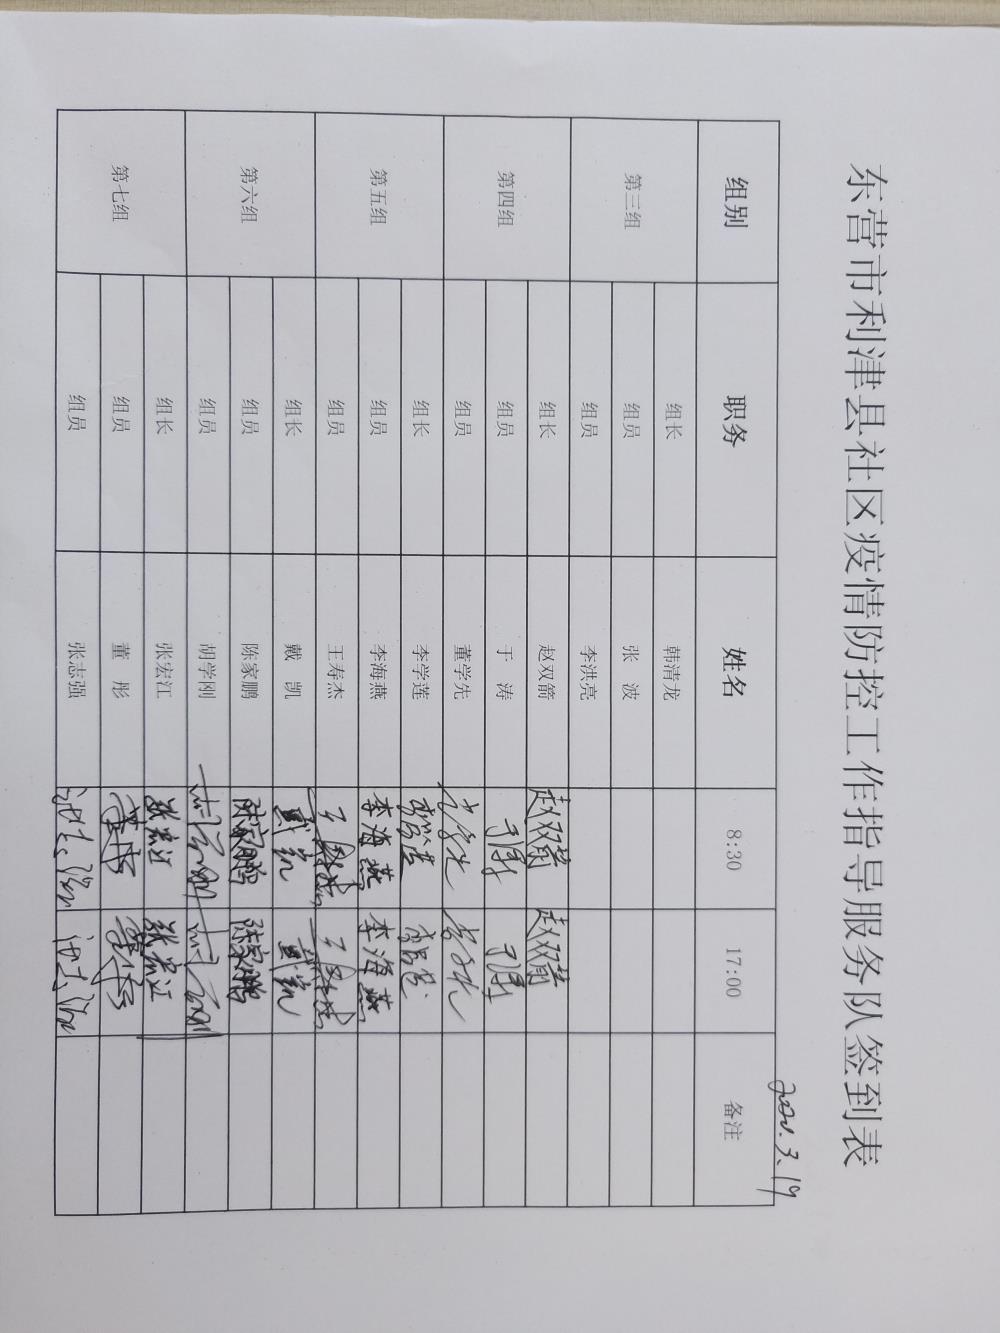 东营市利津县社区疫情防控工作指导服务队签到表
2020.3.19
组别 职务 姓名 8:30 17:00 备注
第三组 组长 韩清龙
组员 张 波
组员 李洪亮
第四组 组长 赵双箭 赵双箭 赵双箭
组员 于 涛 于涛 于涛
组员 董学先
第五组 组长 李学莲
组员 李海燕 李海燕 李海燕
组员 王寿杰 王寿杰 王寿杰
第六组 组长 戴 凯 戴凯 戴凯
组员 陈家鹏 陈家鹏 陈家鹏
组员 胡学刚 胡学刚 胡学刚
第七组 组长 张宏江 张宏江 张宏江
组员 董 彤 董彤 董彤
组员 张志强 张志强 张志强